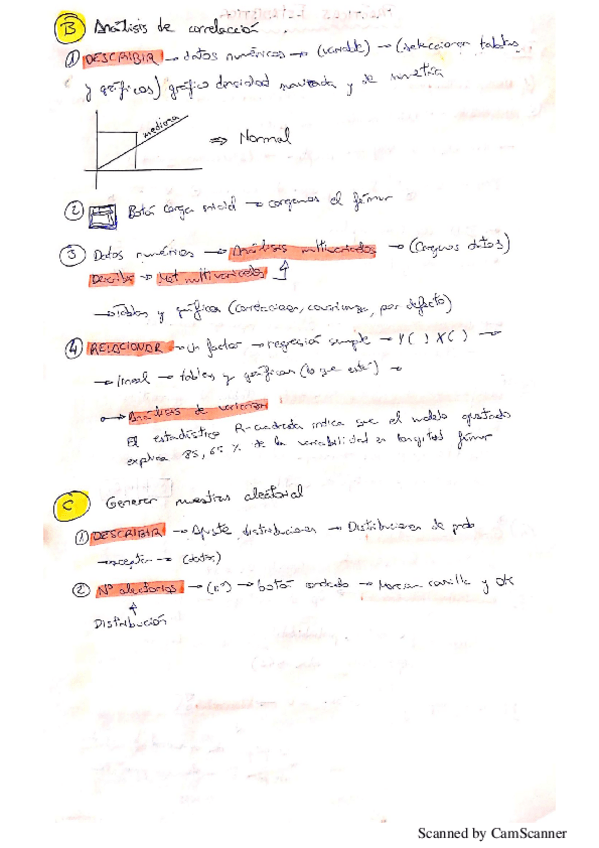 B Análisis de correlación
① DESCRIBIR → datos numéricos → (variable) → (seleccionar tablas
y gráficos) gráfico densidad suavizada y de simetría
mediana
⇒ Normal
② Botón carga inicial → cargamos el fémur
③ Datos numéricos → Análisis multivariados → (Cargamos datos)
Describir → Met multivariados
→ Tablas y gráficos (correlaciones, covarianza, por defecto)
④ RELACIONAR → Un factor → regresión simple → Y( ) X( ) →
→ lineal → tablas y gráficas (lo que esté) →
→ Análisis de varianza
El estadístico R-cuadrada indica que el modelo ajustado
explica 85,65 % de la variabilidad en longitud fémur
C Generar muestras aleatorias
① DESCRIBIR → Ajuste distribuciones → Distribuciones de prob
→ aceptar → (datos)
② Nº aleatorios → (nº) → botón → Marcar casilla y OK
Distribución
Scanned by CamScanner